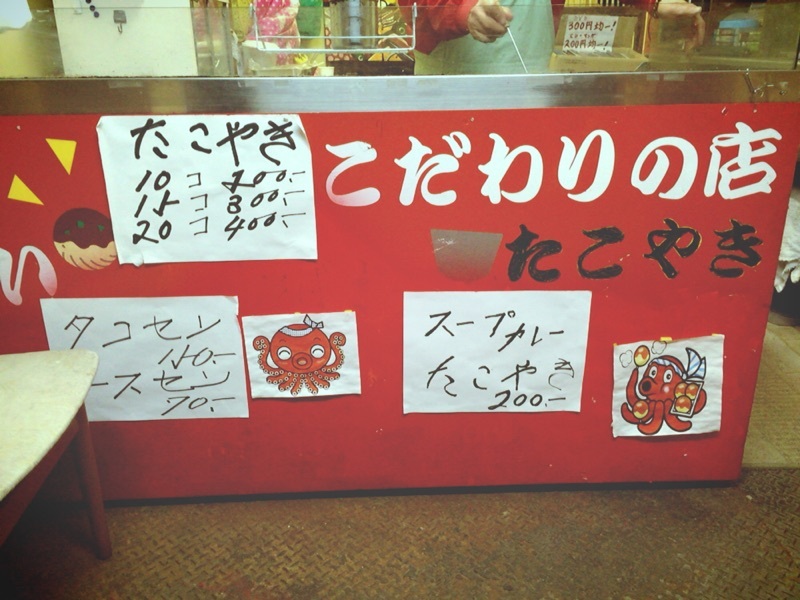 300円均一!
200円均一!
こだわりの店
たこやき
い
たこやき
10コ 200.-
15コ 300.-
20コ 400.-
タコセン
150.-
ースセン
70.-
スープカレー
たこやき
200.-